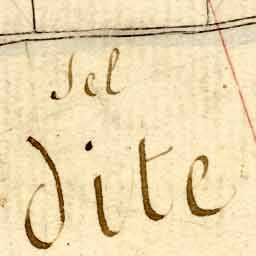 Sel
dite